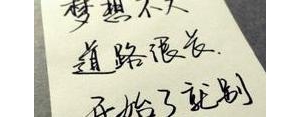 梦想不大
道路很长
开始了就别